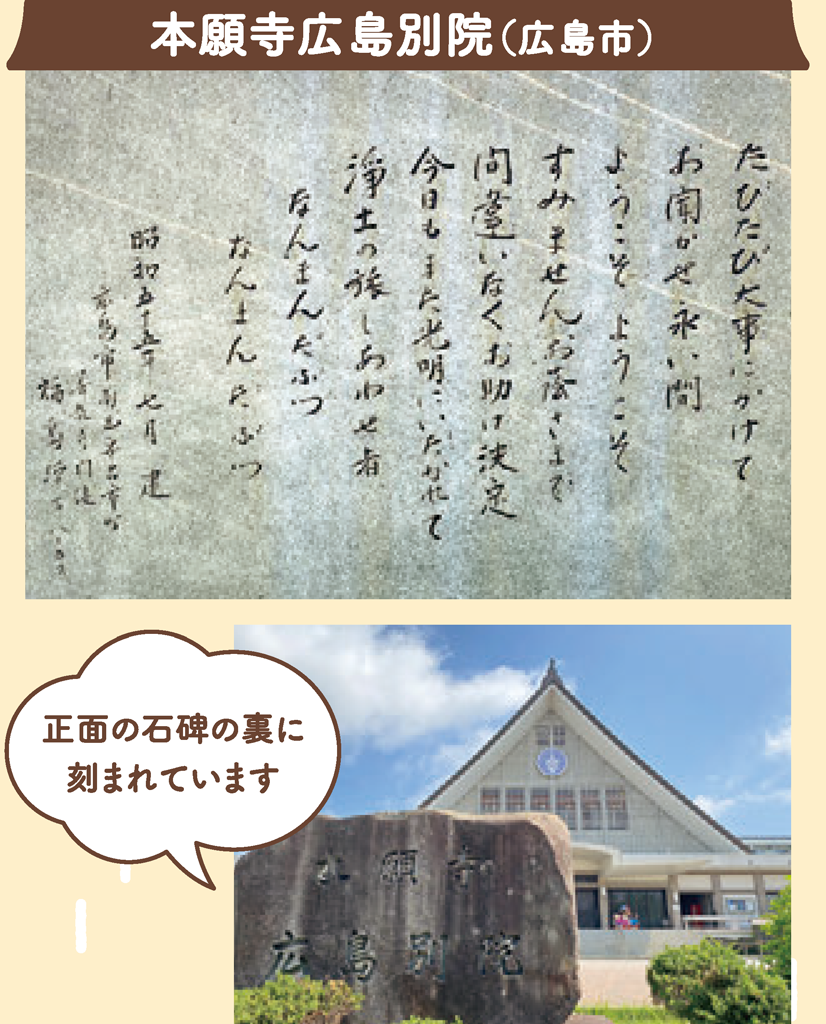 本願寺広島別院(広島市)
たびたび大事にかけて
お聞かせ永い間
ようこそようこそ
すみませんお蔭さまで
間違いなくお助け決定
今日もまた光明にいだかれて
浄土の旅しあわせ者
なんまんだぶつ
なんまんだぶつ
昭和五十五年七月 建
正面の石碑の裏に
刻まれています
本願寺
広島別院